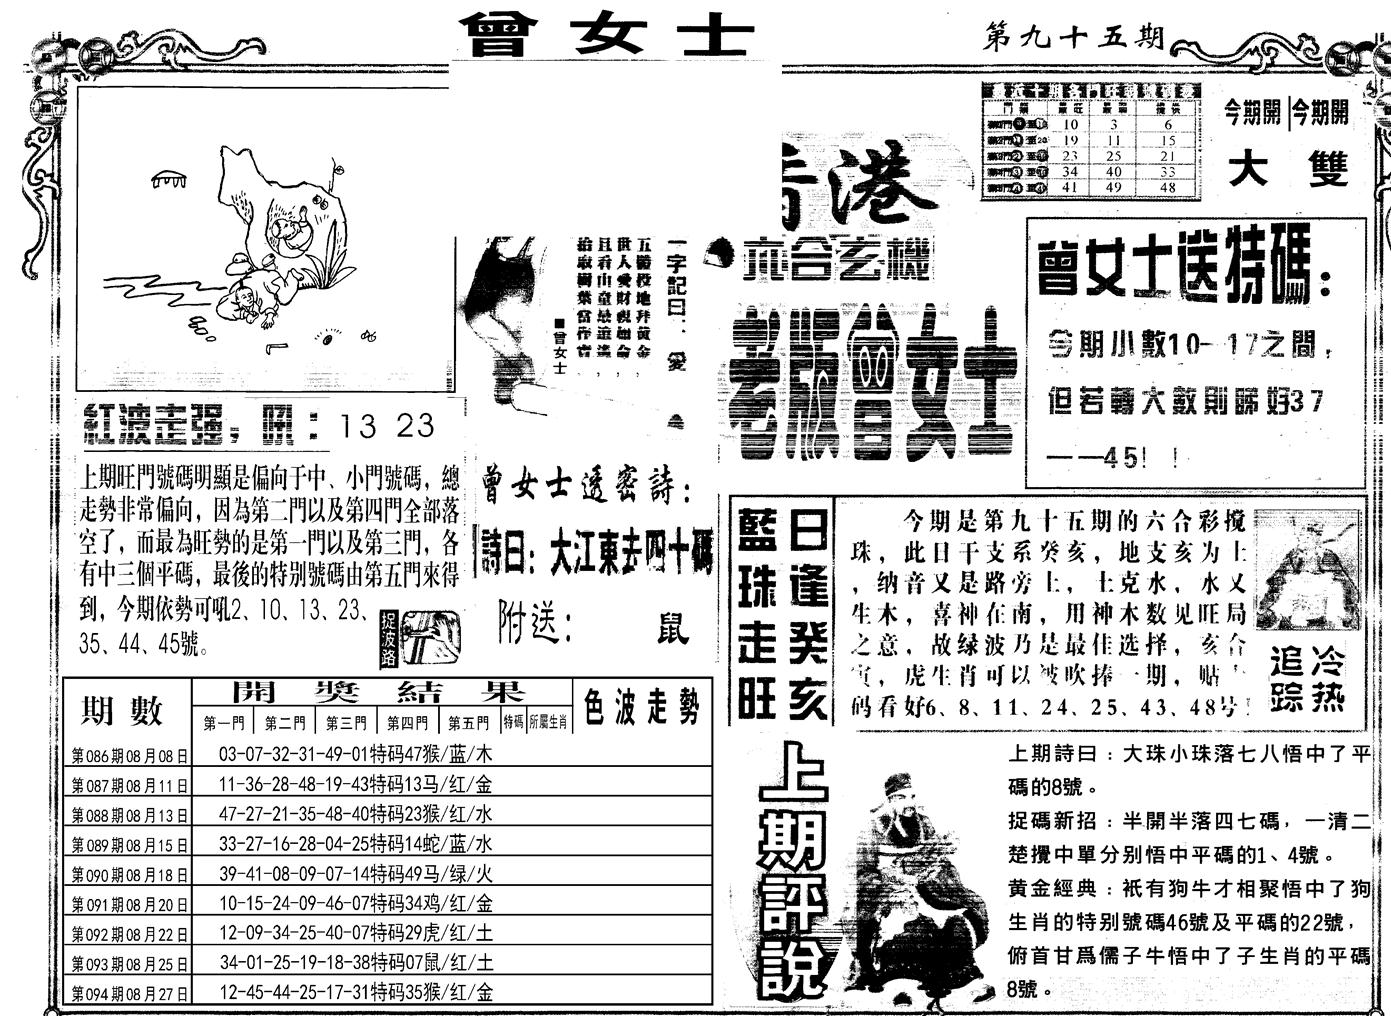 曾女士
第九十五期
門類 最旺 最弱 提供
10 3 6
19 11 15
23 25 21
34 40 33
41 49 48
今期開 今期開
大 雙
港
六合玄機
老版曾女士
一字記曰：愛
五體投地拜黃金，
世人愛財視如命，
且看山童最逍遙，
■曾女士
曾女士送特碼：
今期小數10一17之間，
但若轉大數則睇好37
一一45！！
紅波走强，吼：13 23
上期旺門號碼明顯是偏向于中、小門號碼，總
走勢非常偏向，因為第二門以及第四門全部落
空了，而最為旺勢的是第一門以及第三門，各
有中三個平碼，最後的特别號碼由第五門來得
到，今期依勢可吼2、10、13、23、
35、44、45號。
捉波路
曾女士透密詩：
詩曰：大江東去四十碼
附送： 鼠
藍珠走旺
日逢癸亥
今期是第九十五期的六合彩搅
珠，此日干支系癸亥，地支亥为土
，纳音又是路旁土，土克水，水又
生木，喜神在南，用神木数见旺局
之意，故绿波乃是最佳选择，亥合
寅，虎生肖可以被吹捧一期，贴士
码看好6、8、11、24、25、43、48号！
冷热追踪
期數 開獎結果 色波走勢
第一門 第二門 第三門 第四門 第五門 特碼 所屬生肖
第086期08月08日 03-07-32-31-49-01特码47猴/蓝/木
第087期08月11日 11-36-28-48-19-43特码13马/红/金
第088期08月13日 47-27-21-35-48-40特码23猴/红/水
第089期08月15日 33-27-16-28-04-25特码14蛇/蓝/水
第090期08月18日 39-41-08-09-07-14特码49马/绿/火
第091期08月20日 10-15-24-09-46-07特码34鸡/红/金
第092期08月22日 12-09-34-25-40-07特码29虎/红/土
第093期08月25日 34-01-25-19-18-38特码07鼠/红/土
第094期08月27日 12-45-44-25-17-31特码35猴/红/金
上期評說
上期詩曰：大珠小珠落七八悟中了平
碼的8號。
捉碼新招：半開半落四七碼，一清二
楚攪中單分别悟中平碼的1、4號。
黃金經典：衹有狗牛才相聚悟中了狗
生肖的特别號碼46號及平碼的22號，
俯首甘爲儒子牛悟中了子生肖的平碼
8號。